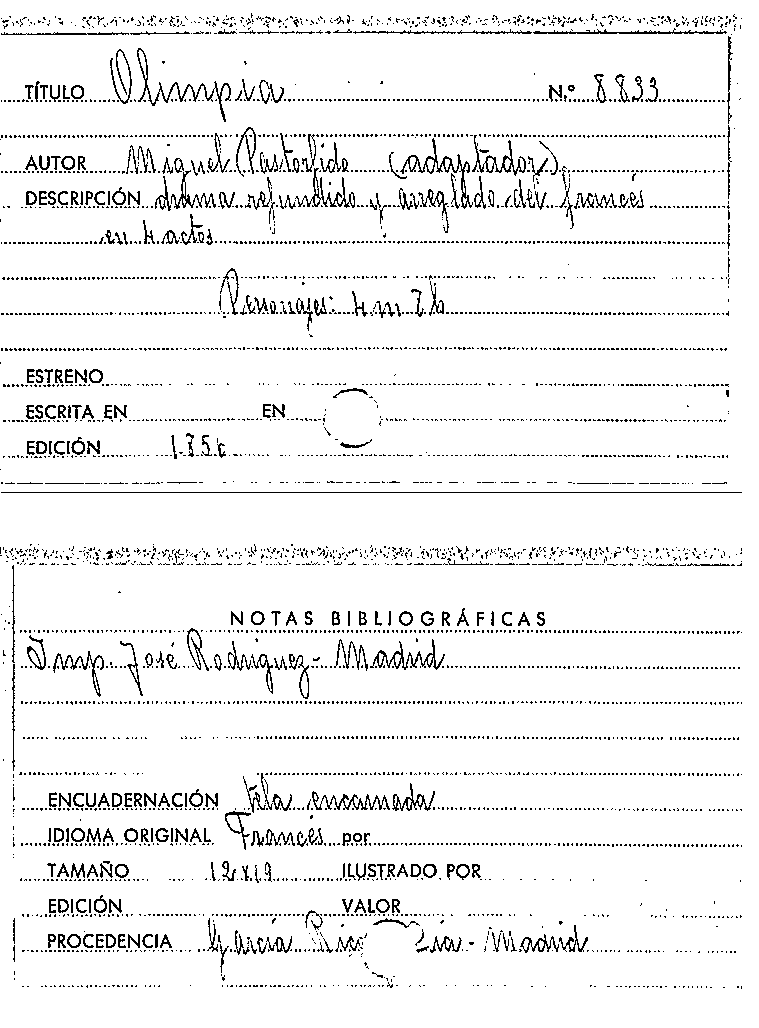 TÍTULO Olimpia N.º 8833
AUTOR Miguel Pastorfido (adaptador)
DESCRIPCIÓN drama refundido y arreglado del francés
en 4 actos
Personajes: 4 m 7 h
ESTRENO
ESCRITA EN EN
EDICIÓN
NOTAS BIBLIOGRÁFICAS
Imp. José Rodriguez - Madrid
ENCUADERNACIÓN tela encarnada
IDIOMA ORIGINAL Francés por
TAMAÑO 12x19 ILUSTRADO POR
EDICIÓN VALOR
PROCEDENCIA García Rico - Madrid